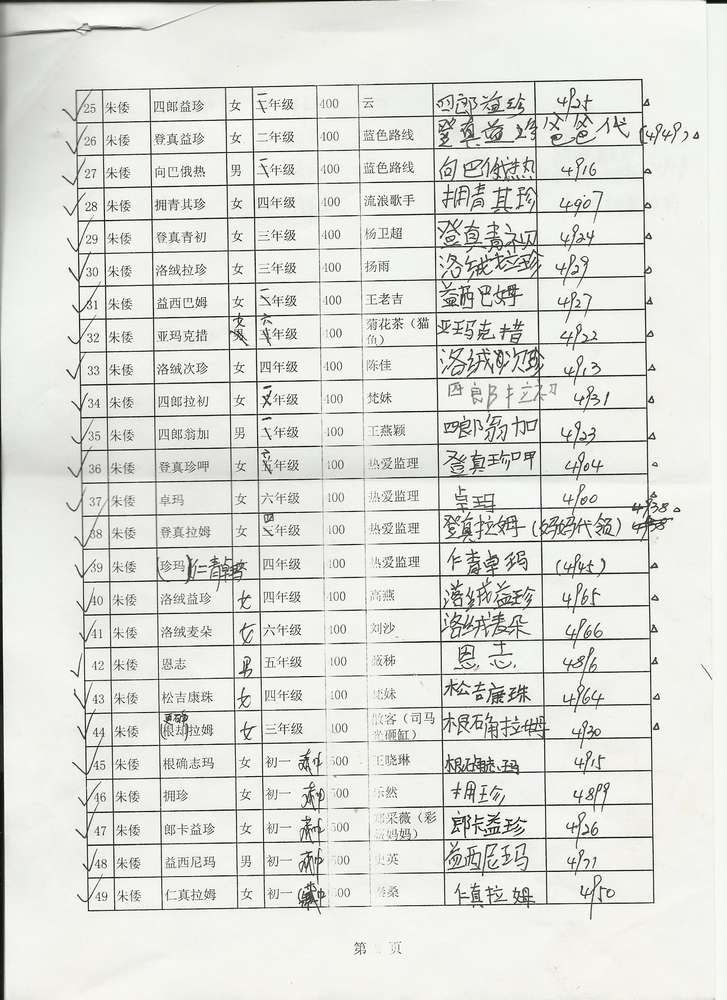 25 朱倭 四郎益珍 女 年级 400 云 四郎益珍 4925
26 朱倭 登真益珍 女 二年级 400 蓝色路线 登真益珍爸爸代 (4949)
27 朱倭 向巴俄热 男 年级 400 蓝色路线 向巴俄热 4916
28 朱倭 拥青其珍 女 四年级 400 流浪歌手 拥青其珍 4907
29 朱倭 登真青初 女 三年级 400 杨卫超 登真青初 4924
30 朱倭 洛绒拉珍 女 三年级 400 扬雨 洛绒拉珍 4929
31 朱倭 益西巴姆 女 年级 400 王老吉 益西巴姆 4927
32 朱倭 亚玛克措 女 六年级 400 菊花茶（猫鱼） 亚玛克措 4922
33 朱倭 洛绒次珍 女 四年级 400 陈佳 洛绒次珍 4913
34 朱倭 四郎拉初 女 年级 400 梵妹 四郎拉初 4931
35 朱倭 四郎翁加 男 年级 400 王燕颖 四郎翁加 4923
36 朱倭 登真珍呷 女 年级 400 热爱监理 登真珍呷 4904
37 朱倭 卓玛 女 六年级 400 热爱监理 卓玛 4900
38 朱倭 登真拉姆 女 四年级 400 热爱监理 登真拉姆(妈妈代领) 4938
39 朱倭 (珍玛)仁青卓玛 女 四年级 400 热爱监理 仁青卓玛 (4945)
40 朱倭 洛绒益珍 女 四年级 400 高燕 洛绒益珍 4965
41 朱倭 洛绒麦朵 女 六年级 400 刘沙 洛绒麦朵 4966
42 朱倭 恩志 男 五年级 400 恩志 4896
43 朱倭 松吉康珠 女 四年级 400 梵妹 松吉康珠 4964
44 朱倭 根却拉姆 女 三年级 400 散客（司马光砸缸） 根确拉姆 4930
45 朱倭 根确志玛 女 初一 500 王晓琳 根确志玛 4915
46 朱倭 拥珍 女 初一 500 乐然 拥珍 4899
47 朱倭 郎卡益珍 女 初一 500 采薇（彩 妈妈） 郎卡益珍 4926
48 朱倭 益西尼玛 男 初一 500 史英 益西尼玛 4971
49 朱倭 仁真拉姆 女 初一 500 桑 仁真拉姆 4950
第 页